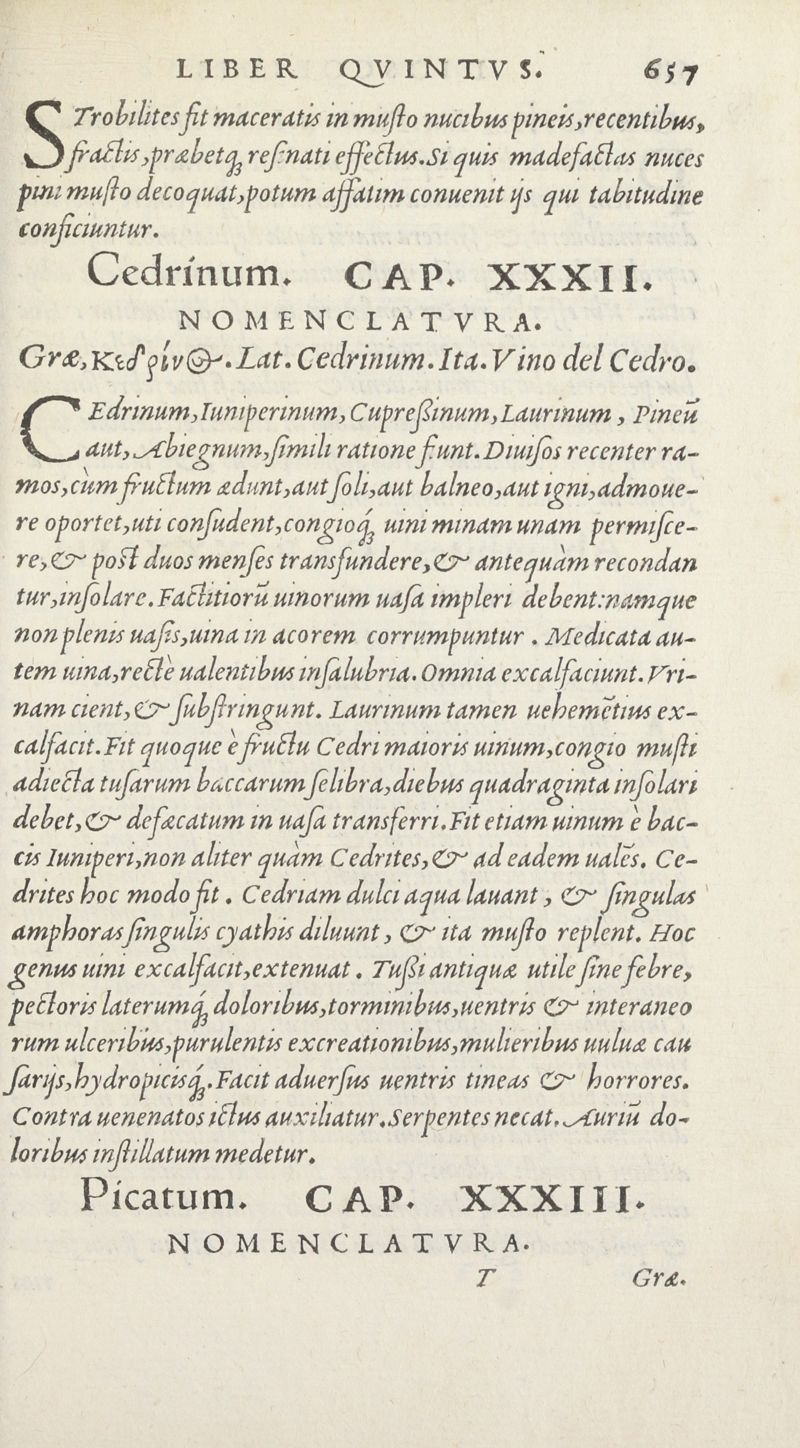 LIBER QVINTVS. 657
STrobilites fit maceratis in muſto nucibus pineis, recentibus,
fractis, præbetq́; reſinati effectus. Si quis madefactas nuces
pini muſto decoquat, potum affatim conuenit ijs qui tabitudine
conficiuntur.
Cedrínum. CAP. XXXII.
NOMENCLATVRA.
Græ, κεδρίνος. Lat. Cedrinum. Ita. Vino del Cedro.
CEdrinum, Iuniperinum, Cupreſsinum, Laurinum, Pineū
aut, Abiegnum, ſimili ratione fiunt. Diuiſos recenter ra-
mos, cùm fructum ædunt, aut ſoli, aut balneo, aut igni, admoue-
re oportet, uti conſudent, congioq́; uini minam unam permiſce-
re, & poſt duos menſes transfundere, & antequàm recondan
tur, inſolare. Factitiorū uinorum uaſa impleri debent: namque
non plenis uaſis, uina in acorem corrumpuntur. Medicata au-
tem uina, rectè ualentibus inſalubria. Omnia excalfaciunt. Vri-
nam cient, & ſubſtringunt. Laurinum tamen uehemẽtius ex-
calfacit. Fit quoque è fructu Cedri maioris uinum, congio muſti
adiecta tuſarum baccarum ſelibra, diebus quadraginta inſolari
debet, & defæcatum in uaſa transferri. Fit etiam uinum è bac-
cis Iuniperi, non aliter quàm Cedrites, & ad eadem ualẽs. Ce-
drites hoc modo fit. Cedriam dulci aqua lauant, & ſingulas
amphoras ſingulis cyathis diluunt, & ita muſto replent. Hoc
genus uini excalfacit, extenuat. Tuſsi antiquæ utile ſine febre,
pectoris laterumq́; doloribus, torminibus, uentris & interaneo
rum ulceribus, purulentis excreationibus, mulieribus uuluæ cau
ſarijs, hydropicisq́;. Facit aduerſus uentris tineas & horrores.
Contra uenenatos ictus auxiliatur. Serpentes necat. Auriū do-
loribus inſtillatum medetur.
Pícatum. CAP. XXXIII.
NOMENCLATVRA.
T Græ.